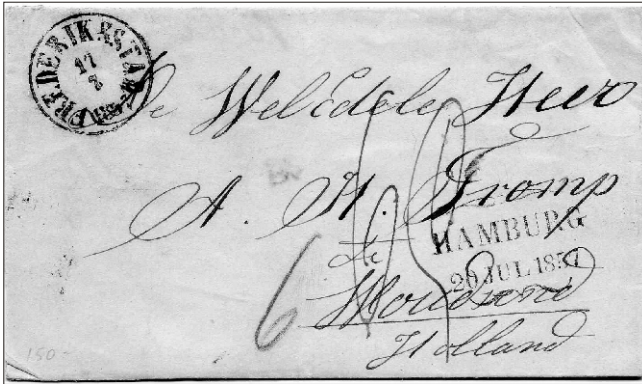 FREDERIKSSTAD
17
7
De Weledele Heer
A. H. Tromp
HAMBURG
20 JUL 1857
te
Woudsend
Holland
6
150-